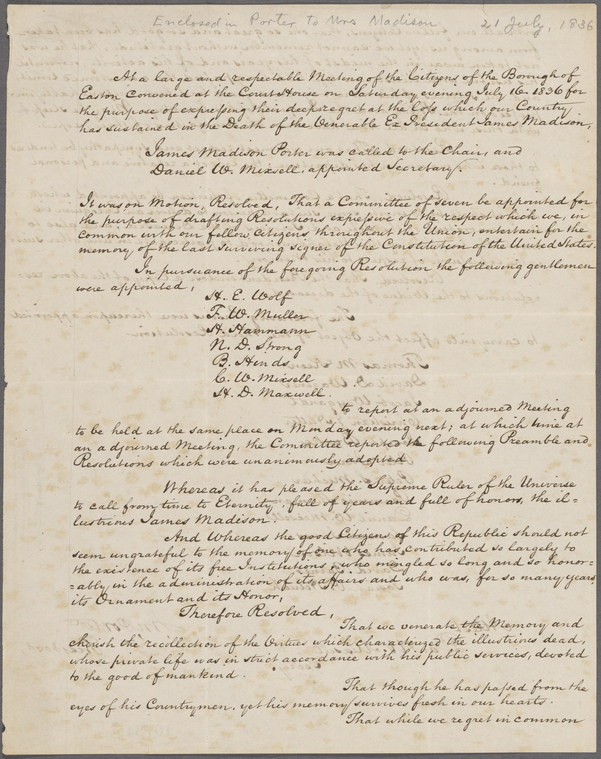 Enclosed in Porter to Mrs Madison 21 July, 1836
At a large and respectable Meeting of the Citizens of the Borough of
Easton convened at the Court House on Saturday evening July 16. 1836 for
the purpose of expressing their deep regret at the loss which our Country
has sustained in the Death of the Venerable Ex President James Madison,
James Madison Porter was called to the Chair, and
Daniel W. Mixsell, appointed Secretary.
It was on Motion, Resolved, That a Committee of seven be appointed for
the purpose of drafting Resolutions expressive of the respect which we, in
common with our fellow citizens throughout the Union, entertain for the
memory of the last surviving signer of the Constitution of the United States.
In pursuance of the foregoing Resolution the following gentlemen
were appointed,
H. E. Wolf
F. W. Muller
H. Hammann
N. D. Strong
B. Hinds
C. W. Mixsell
H. D. Maxwell.
to report at an adjourned Meeting
to be held at the same place on Monday evening next; at which time at
an adjourned Meeting, the Committee reported the following Preamble and
Resolutions which were unanimously adopted
Whereas it has pleased the Supreme Ruler of the Universe
to call from time to Eternity, full of years and full of honors, the il-
lustrious James Madison.
And Whereas the good Citizens of this Republic should not
seem ungrateful to the memory of one who has contributed so largely to
the existence of its free Institutions, who mingled so long and so honor-
-ably in the administration of its affairs and who was, for so many years,
its Ornament and its Honor,
Therefore Resolved,
That we venerate the Memory and
cherish the recollection of the Virtues which characterized the illustrious dead,
whose private life was in strict accordance with his public services, devoted
to the good of mankind.
That though he has passed from the
eyes of his Countrymen, yet his memory survives fresh in our hearts.
That while we regret in common